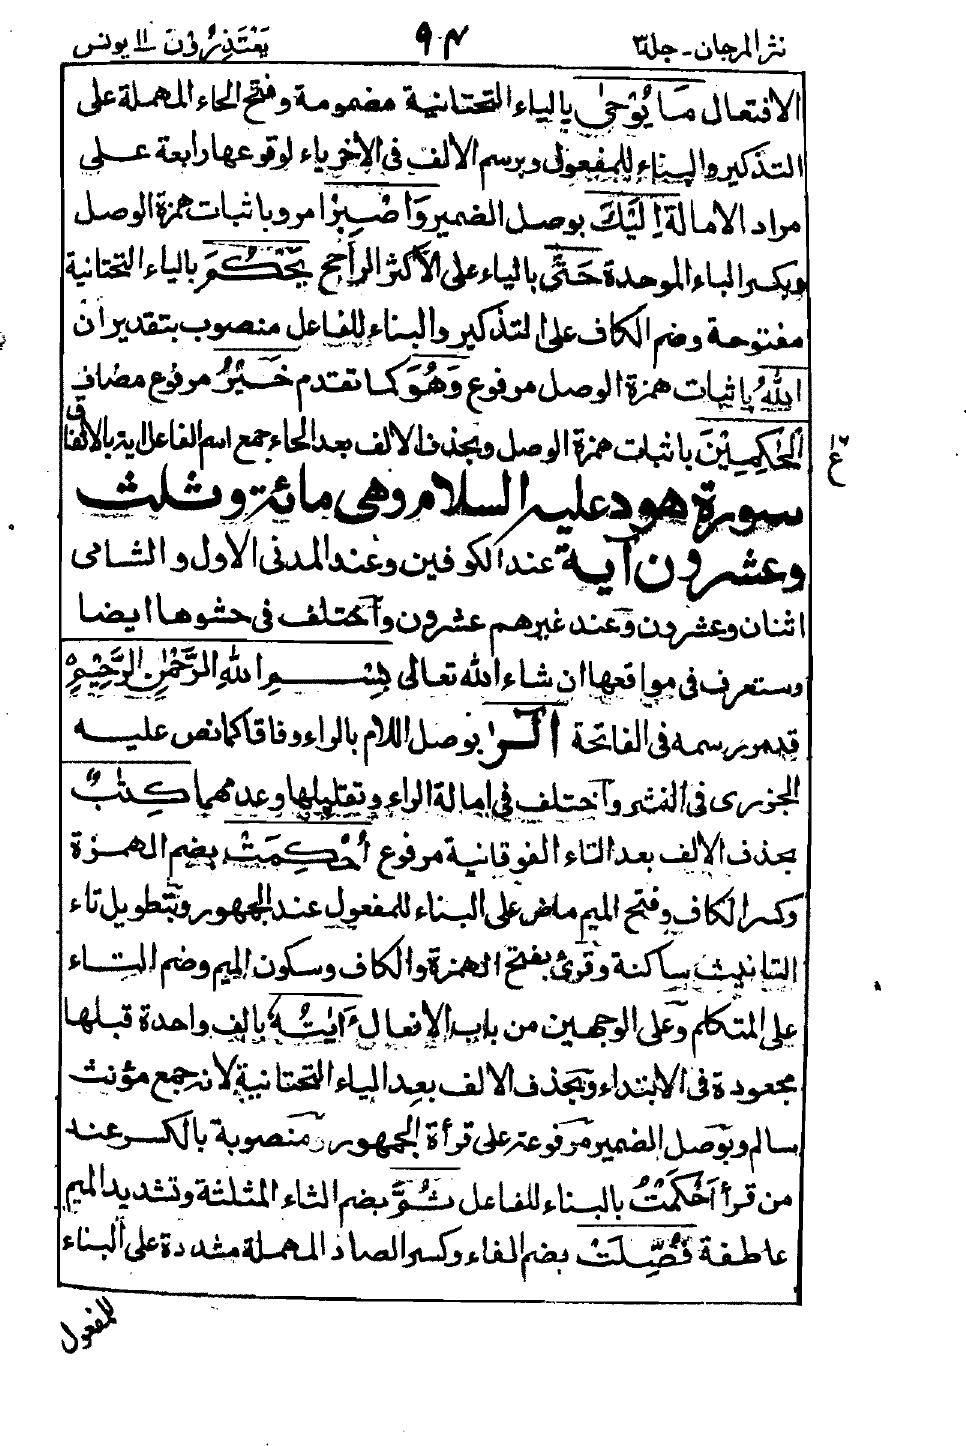 نثر المرجان - جلد ٣
٩٤
يَعْتَذِرُوْنَ ١١ يونس
الافتعال مَا يُوْحٰى بالياء التحتانية مضمومة وفتح الحاء المهملة على
التذكير والبناء للمفعول وبرسم الالف فى الاخر ياء لوقوعها رابعة على
مراد الامالة اِلَيْكَ بوصل الضمير وَاصْبِرْ امر وباثبات همزة الوصل
وبكسر الباء الموحدة حَتّٰى بالياء على الاكثر الراجح يَحْكُمَ بالياء التحتانية
مفتوحة وضم الكاف على التذكير والبناء للفاعل منصوب بتقدير ان
اللّٰهُ باثبات همزة الوصل مرفوع وَهُوَ كما تقدم خَيْرُ مرفوع مضاف
الْحٰكِمِيْنَ باثبات همزة الوصل وبحذف الالف بعد الحاء جمع اسم الفاعل اية بالاتفاق
سورة هود عليه السلام وهى مائة وثلث
وعشرون آية عند الكوفين وعند المدنى الاول والشامى
اثنان وعشرون وعند غيرهم عشرون واختلف فى حشوها ايضا
وستعرف فى مواقعها ان شاء الله تعالى بِسْمِ اللّٰهِ الرَّحْمٰنِ الرَّحِيْمِ
قد مر رسمه فى الفاتحة الٓرٰ بوصل اللام بالراء وفاقا كما نص عليه
الجزرى فى النشر واختلف فى امالة الراء وتقليلها وعدمهما كِتٰبٌ
بحذف الالف بعد التاء الفوقانية مرفوع اُحْكِمَتْ بضم الهمزة
وكسر الكاف وفتح الميم ماض على البناء للمفعول عند الجمهور وبتطويل تاء
التانيث ساكنة وقرئ بفتح الهمزة والكاف وسكون الميم وضم التاء
على المتكلم وعلى الوجهين من باب الافعال ءَايٰتُهٗ بالف واحدة قبلها
مجعودة فى الابتداء وبحذف الالف بعد الياء التحتانية لانه جمع مؤنث
سالم وبوصل الضمير مرفوعة على قرأة الجمهور ومنصوبة بالكسر عند
من قرأ اَحْكَمْتُ بالبناء للفاعل ثُمَّ بضم الثاء المثلثة وتشديد الميم
عاطفة فُصِّلَتْ بضم الفاء وكسر الصاد المهملة مشددة على البناء
للمفعول